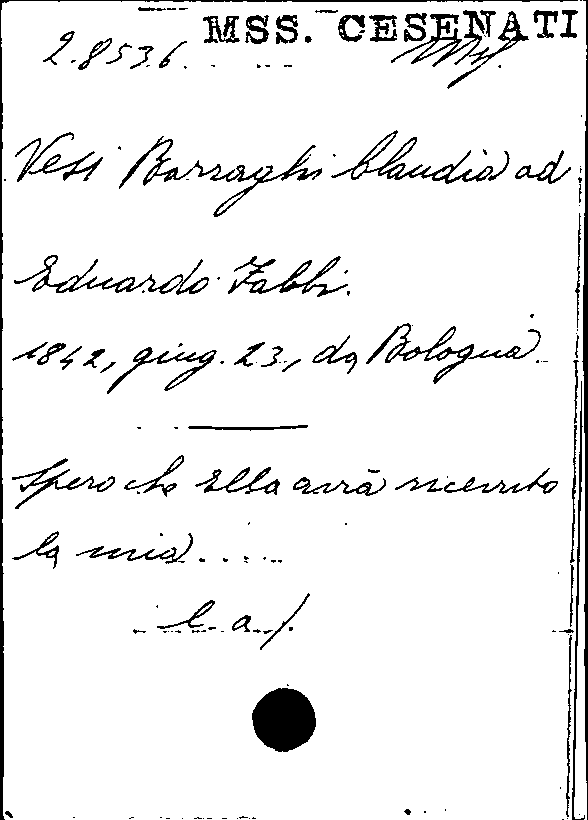 MSS. CESENATI
2.8536.
Vesi Borraghi Claudia ad
Eduardo Fabbi.
1842, giug. 23, da Bologna
Spero che Ella avrà ricevuto
la mia.....
l. a/.